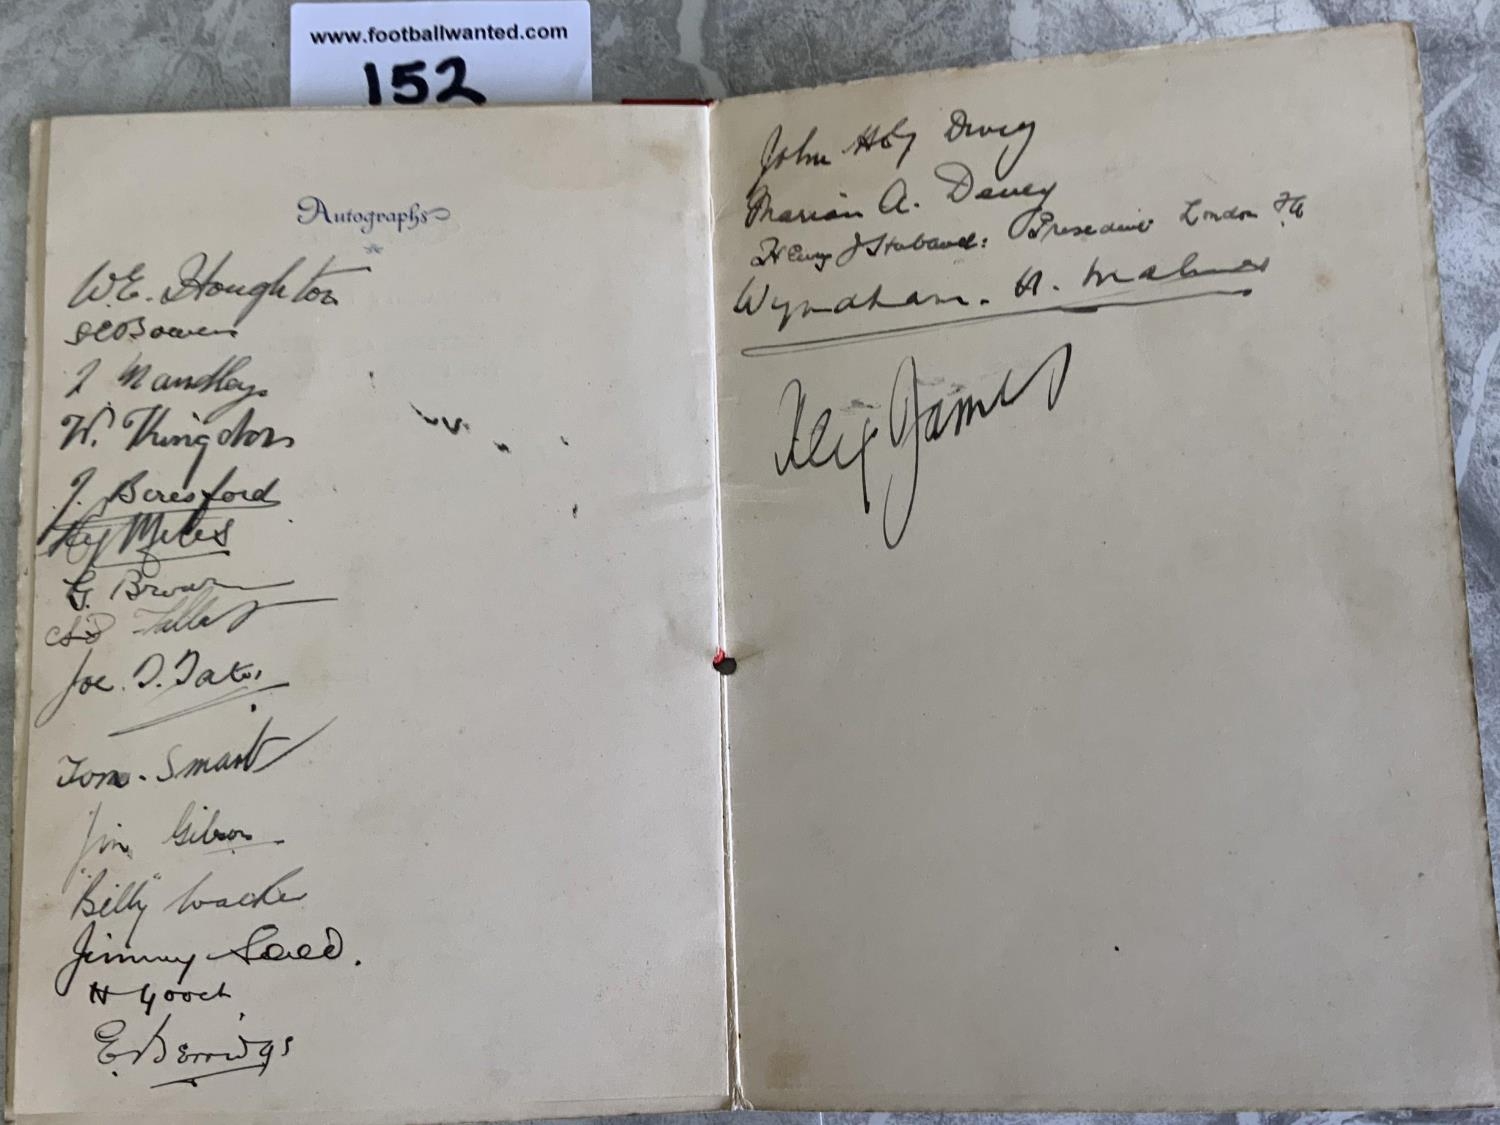 www.footballwanted.com
152
Autographs
W.E. Houghton
Bowen
J Mandley
W. Kingdon
J. Beresford
Miles
G. Brown
Joe. D. Tate.
Tom. Smart
Jim Gibson
"Billy" Walker
Jimmy
H Gooch
E. Berridge
John
Marian A. Davey
Henry J Husband: President London FA
Wyndham. A.
Alex James